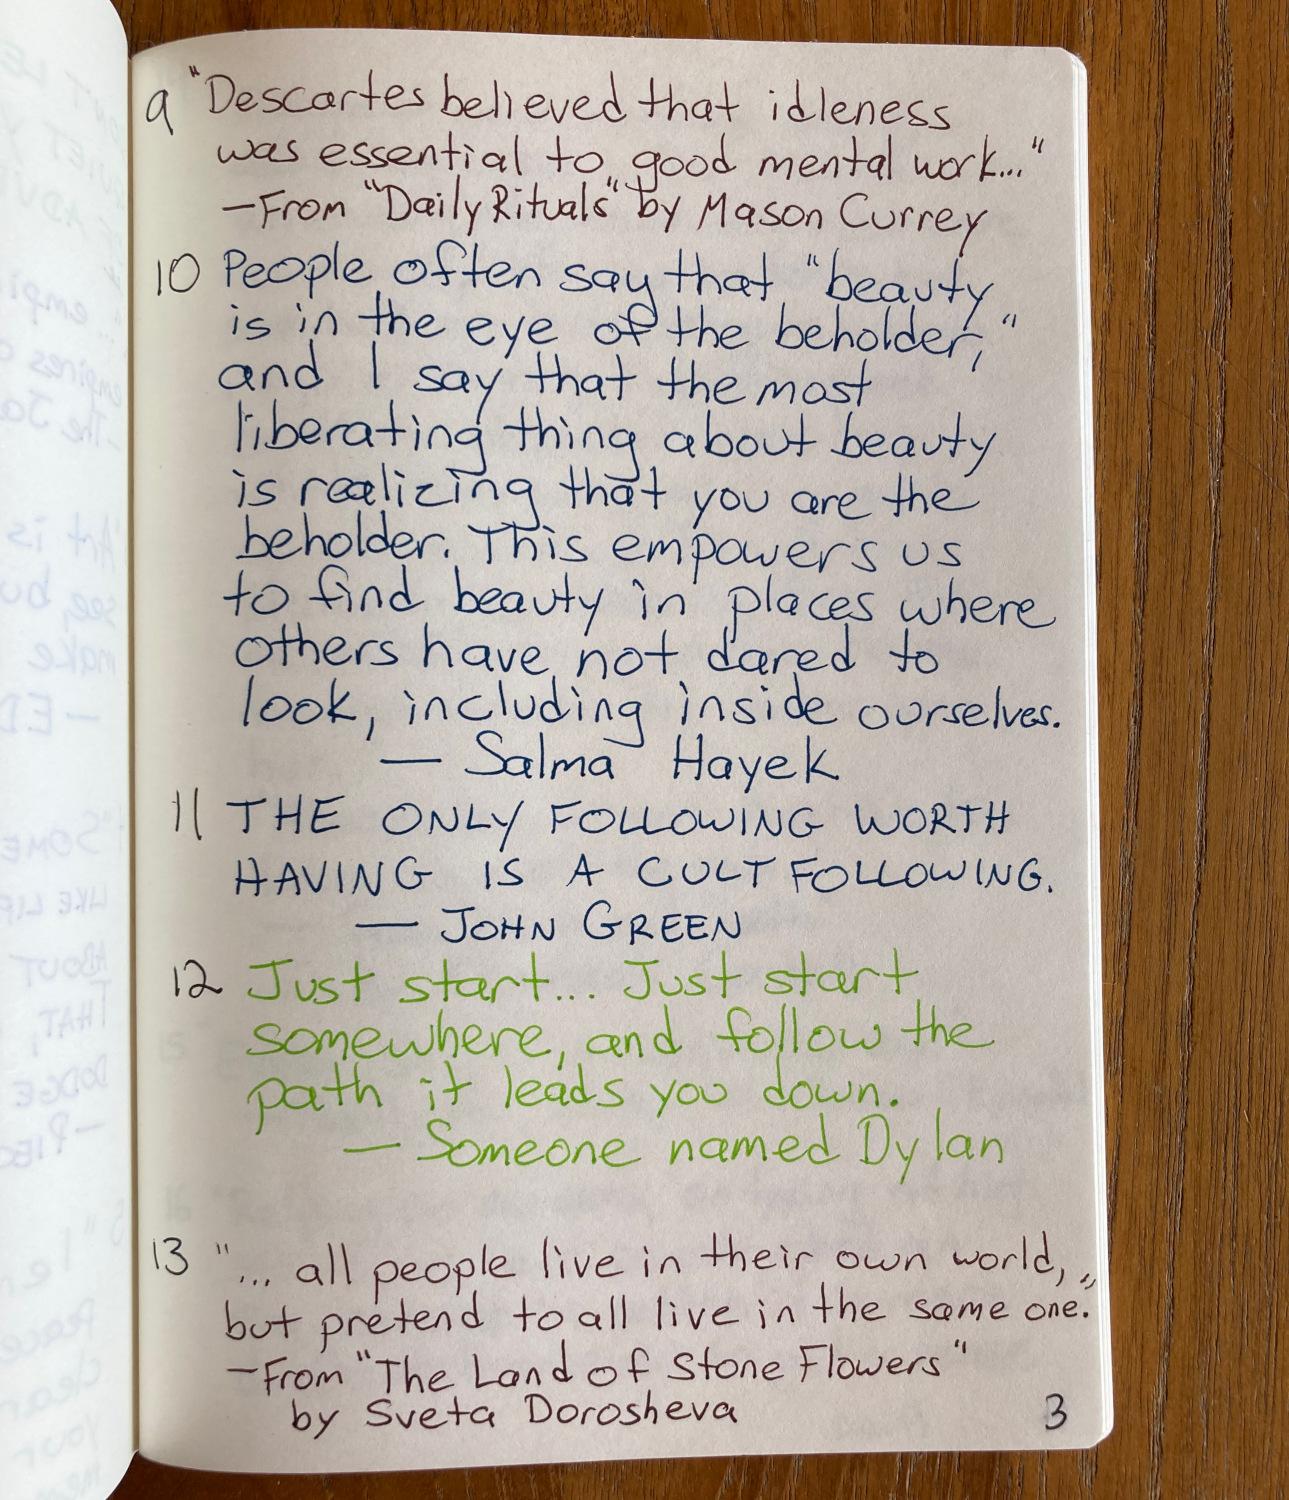 9 "Descartes believed that idleness
was essential to good mental work..."
—From "Daily Rituals" by Mason Currey
10 People often say that "beauty
is in the eye of the beholder,"
and I say that the most
liberating thing about beauty
is realizing that you are the
beholder. This empowers us
to find beauty in places where
others have not dared to
look, including inside ourselves.
— Salma Hayek
11 THE ONLY FOLLOWING WORTH
HAVING IS A CULT FOLLOWING.
— JOHN GREEN
12 Just start... Just start
somewhere, and follow the
path it leads you down.
— Someone named Dylan
13 "... all people live in their own world,
but pretend to all live in the same one."
—From "The Land of Stone Flowers"
by Sveta Dorosheva
3